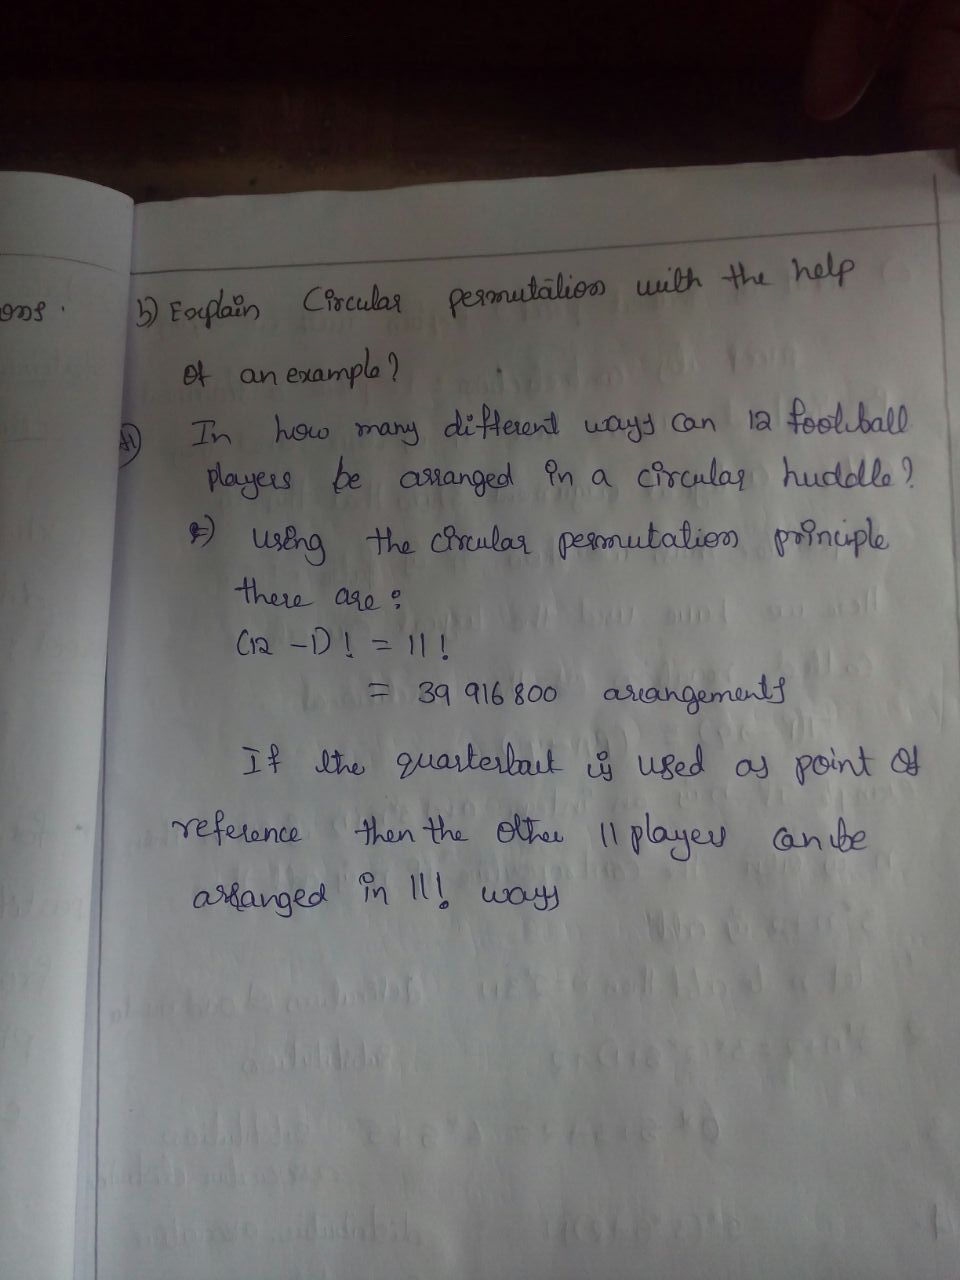 ons.
b) Explain Circular permutation with the help
of an example?
A) In how many different ways can 12 football
players be arranged in a circular huddle?
using the circular permutation principle
there are:
(12 -1)! = 11!
= 39 916 800 arrangements
If the quarterback is used as point of
reference then the other 11 players can be
arranged in 11! ways